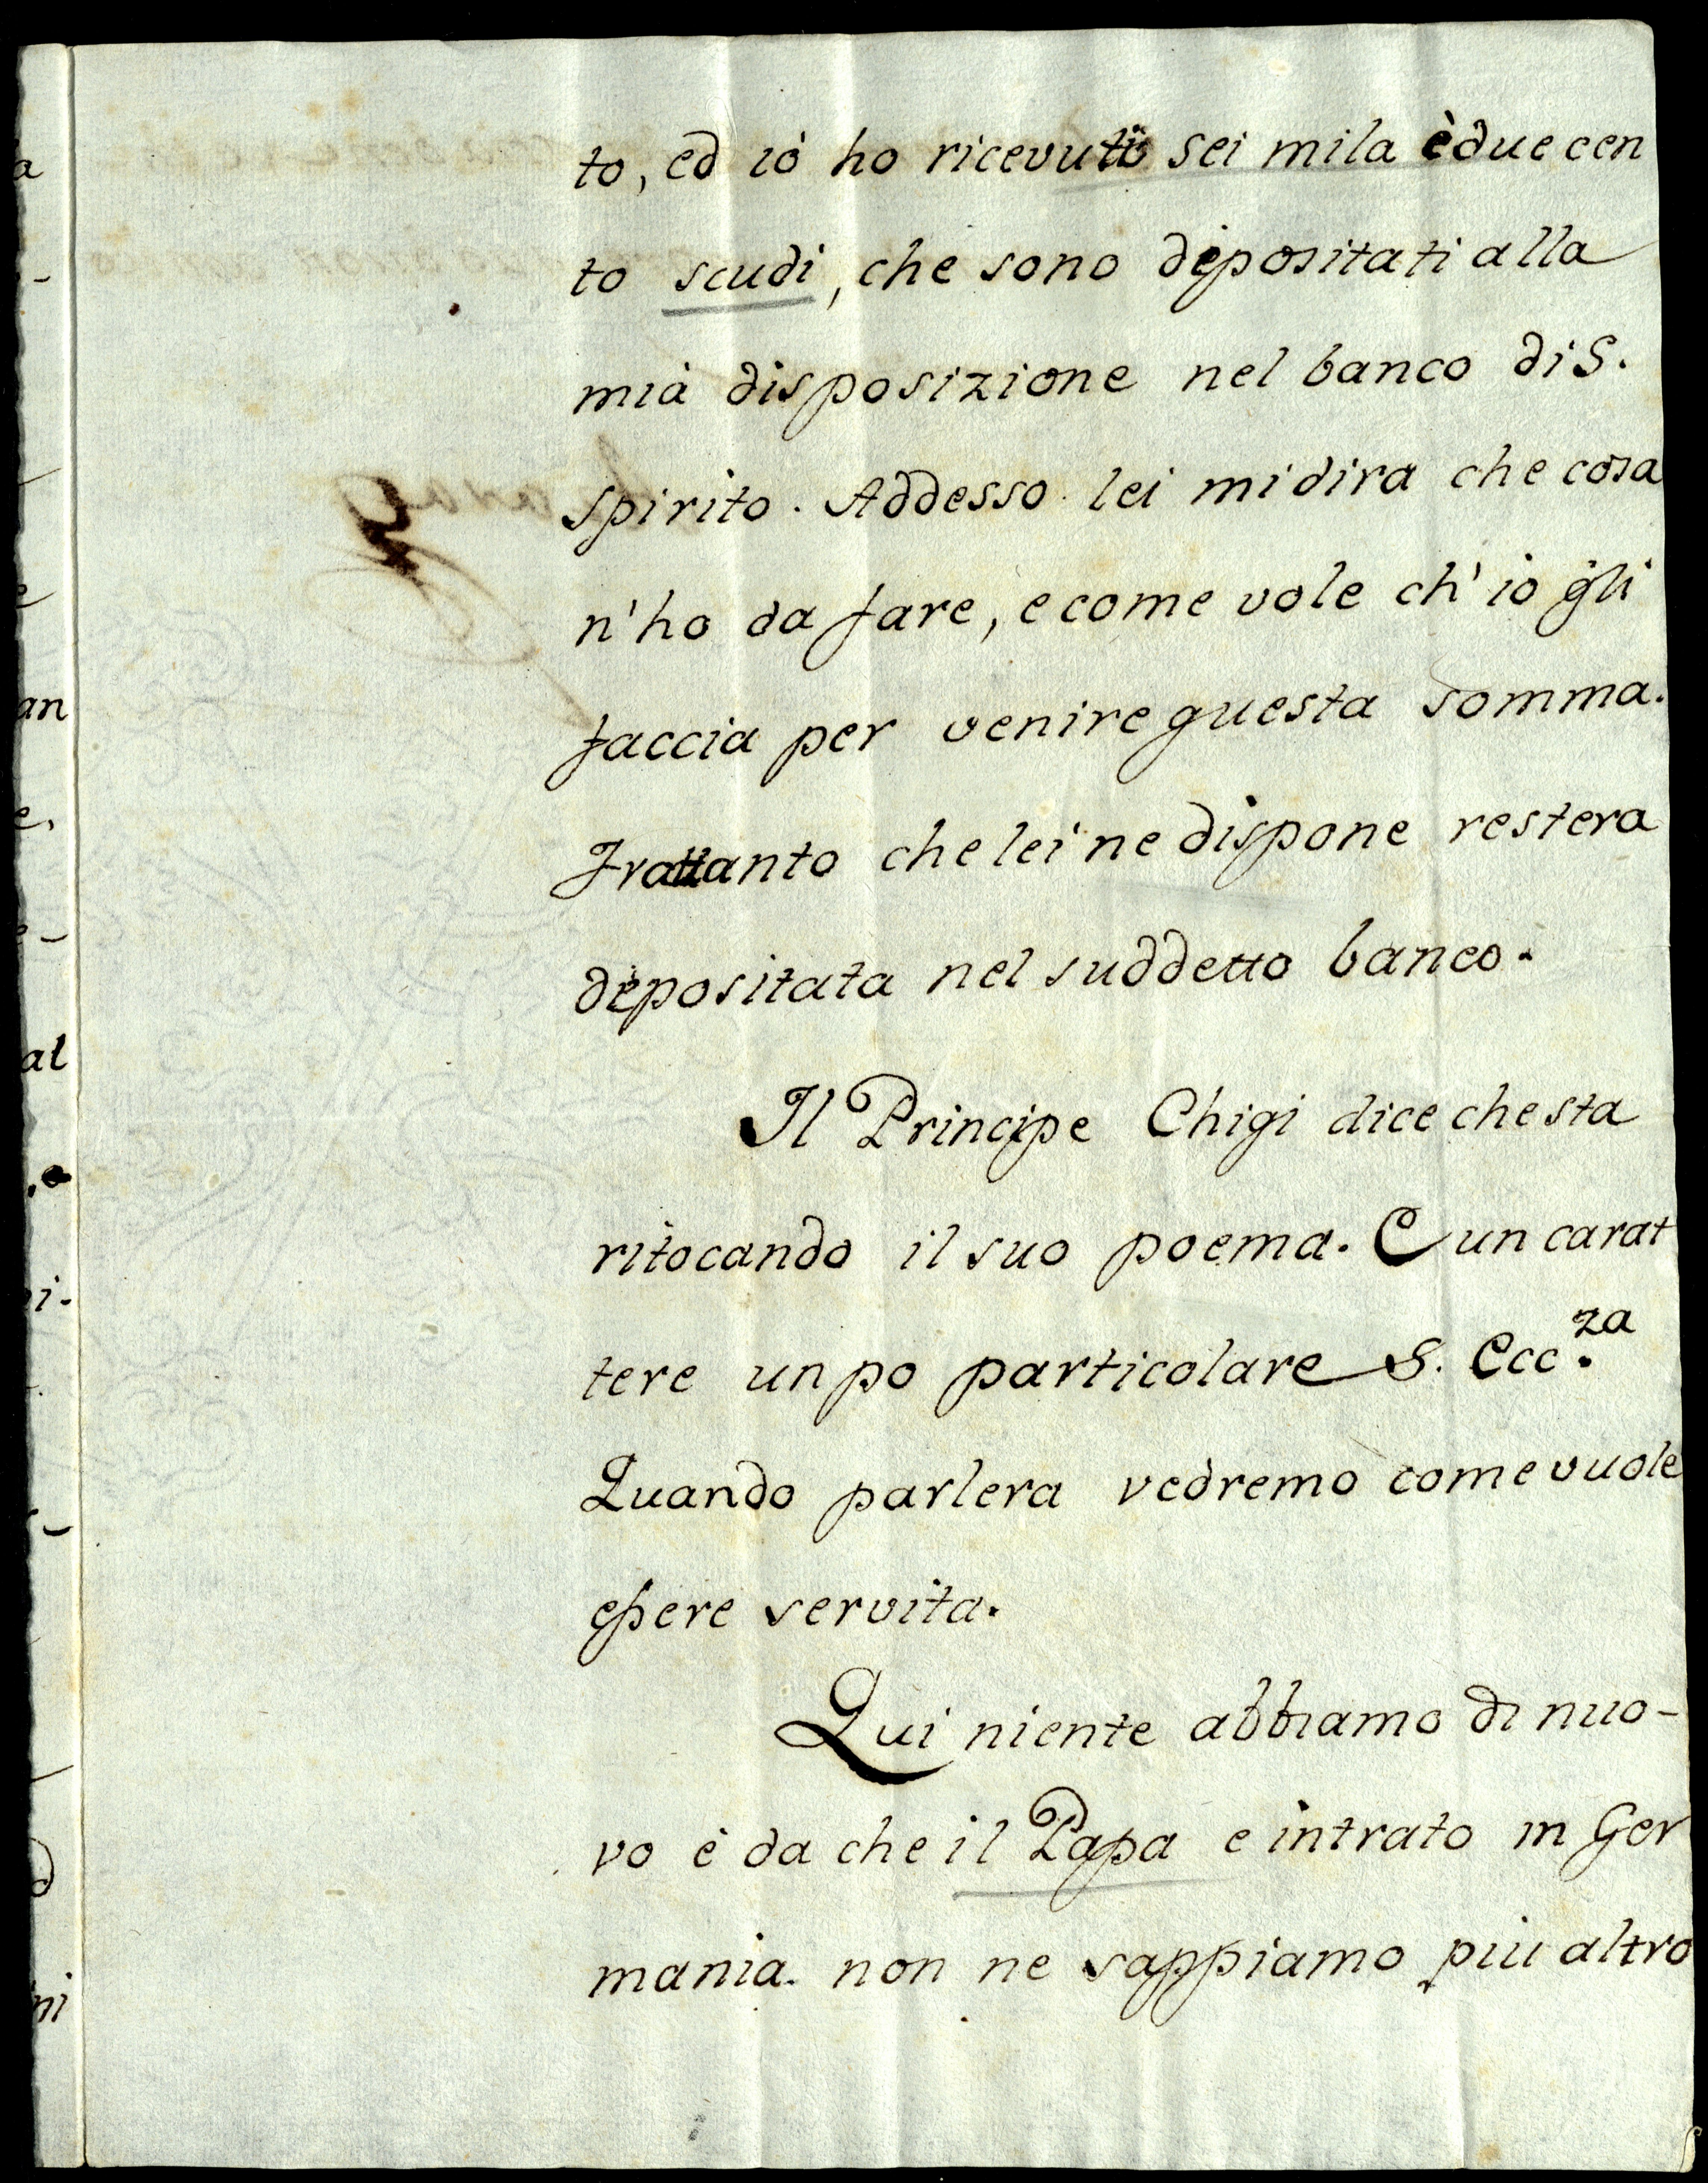 to, ed io ho ricevuti sei mila è due cen
to scudi, che sono depositati alla
mia disposizione nel banco di S.
spirito. Addesso lei mi dira che cosa
n'ho da fare, e come vole ch'io gli
faccia per venire questa somma.
Frattanto che lei ne dispone restera
depositata nel suddetto banco.
Il Principe Chigi dice che sta
ritocando il suo poema. E un carat
tere un po particolare S. Ecc.za
Quando parlera vedremo come vuole
essere servita.
Qui niente abbiamo di nuo-
vo è da che il Papa e intrato in Ger
mania. non ne sappiamo piu altro
a
an
e,
al
ni